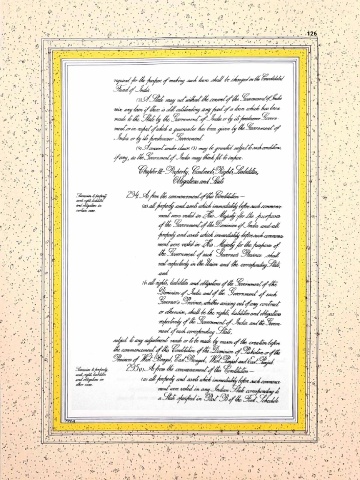 126
required for the purpose of making such loans shall be charged on the Consolidated
Fund of India.
(3) A State may not without the consent of the Government of India
raise any loan if there is still outstanding any part of a loan which has been
made to the State by the Government of India or by its predecessor Govern-
ment, or in respect of which a guarantee has been given by the Government of
India or by its predecessor Government.
(4) A consent under clause (3) may be granted subject to such conditions,
if any, as the Government of India may think fit to impose.
Chapter III—Property, Contracts, Rights, Liabilities,
Obligations and Suits
Succession to property,
assets, rights, liabilities
and obligations in
certain cases.
294. As from the commencement of this Constitution—
(a) all property and assets which immediately before such commence-
ment were vested in His Majesty for the purposes
of the Government of the Dominion of India and all
property and assets which immediately before such commence-
ment were vested in His Majesty for the purposes of
the Government of each Governor's Province shall
vest respectively in the Union and the corresponding State,
and
(b) all rights, liabilities and obligations of the Government of the
Dominion of India and of the Government of each
Governor's Province, whether arising out of any contract
or otherwise, shall be the rights, liabilities and obligations
respectively of the Government of India and the Govern-
ment of each corresponding State,
subject to any adjustment made or to be made by reason of the creation before
the commencement of this Constitution of the Dominion of Pakistan or of the
Provinces of West Bengal, East Bengal, West Punjab and East Punjab.
Succession to property,
assets, rights, liabilities
and obligations in
other cases.
295. (1) As from the commencement of this Constitution—
(a) all property and assets which immediately before such commence-
ment were vested in any Indian State corresponding to
a State specified in Part B of the First Schedule